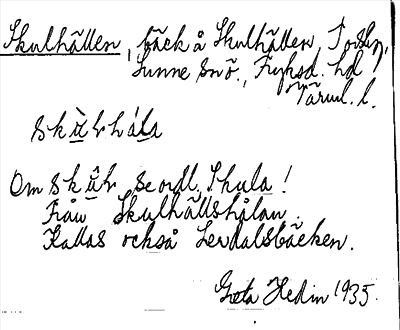 Skulhällen, bäck å Skulhällen,
Sunne snö., Fryksd. hd
Värml. l.
Om skùl se ordl. Skula!
Från Skulhällshålan.
Kallas också Lerdalsbäcken.
Greta Hedin 1935.